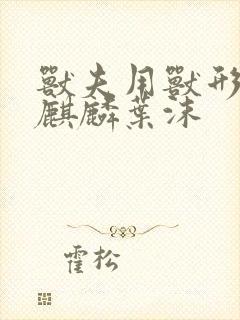 獸夫用獸形
麒麟葉沫
霍松